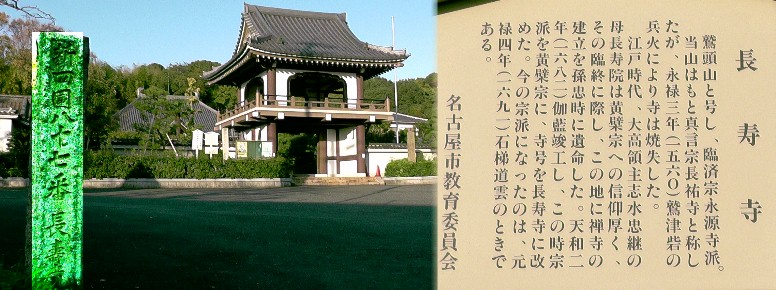 新四国八十七番 長寿
長寿寺
鷲頭山と号し、臨済宗永源寺派。
当山はもと真言宗長祐寺と称し
たが、永禄三年(一五六〇)鷲津砦の
兵火により寺は焼失した。
江戸時代、大高領主志水忠継の
母長寿院は黄檗宗への信仰厚く、
その臨終に際し、この地に禅寺の
建立を孫忠時に遺命した。天和二
年(一六八二)伽藍竣工し、この時宗
派を黄檗宗に、寺号を長寿寺に改
めた。今の宗派になったのは、元
禄四年(一六九一)石梯道雲のときで
ある。
名古屋市教育委員会